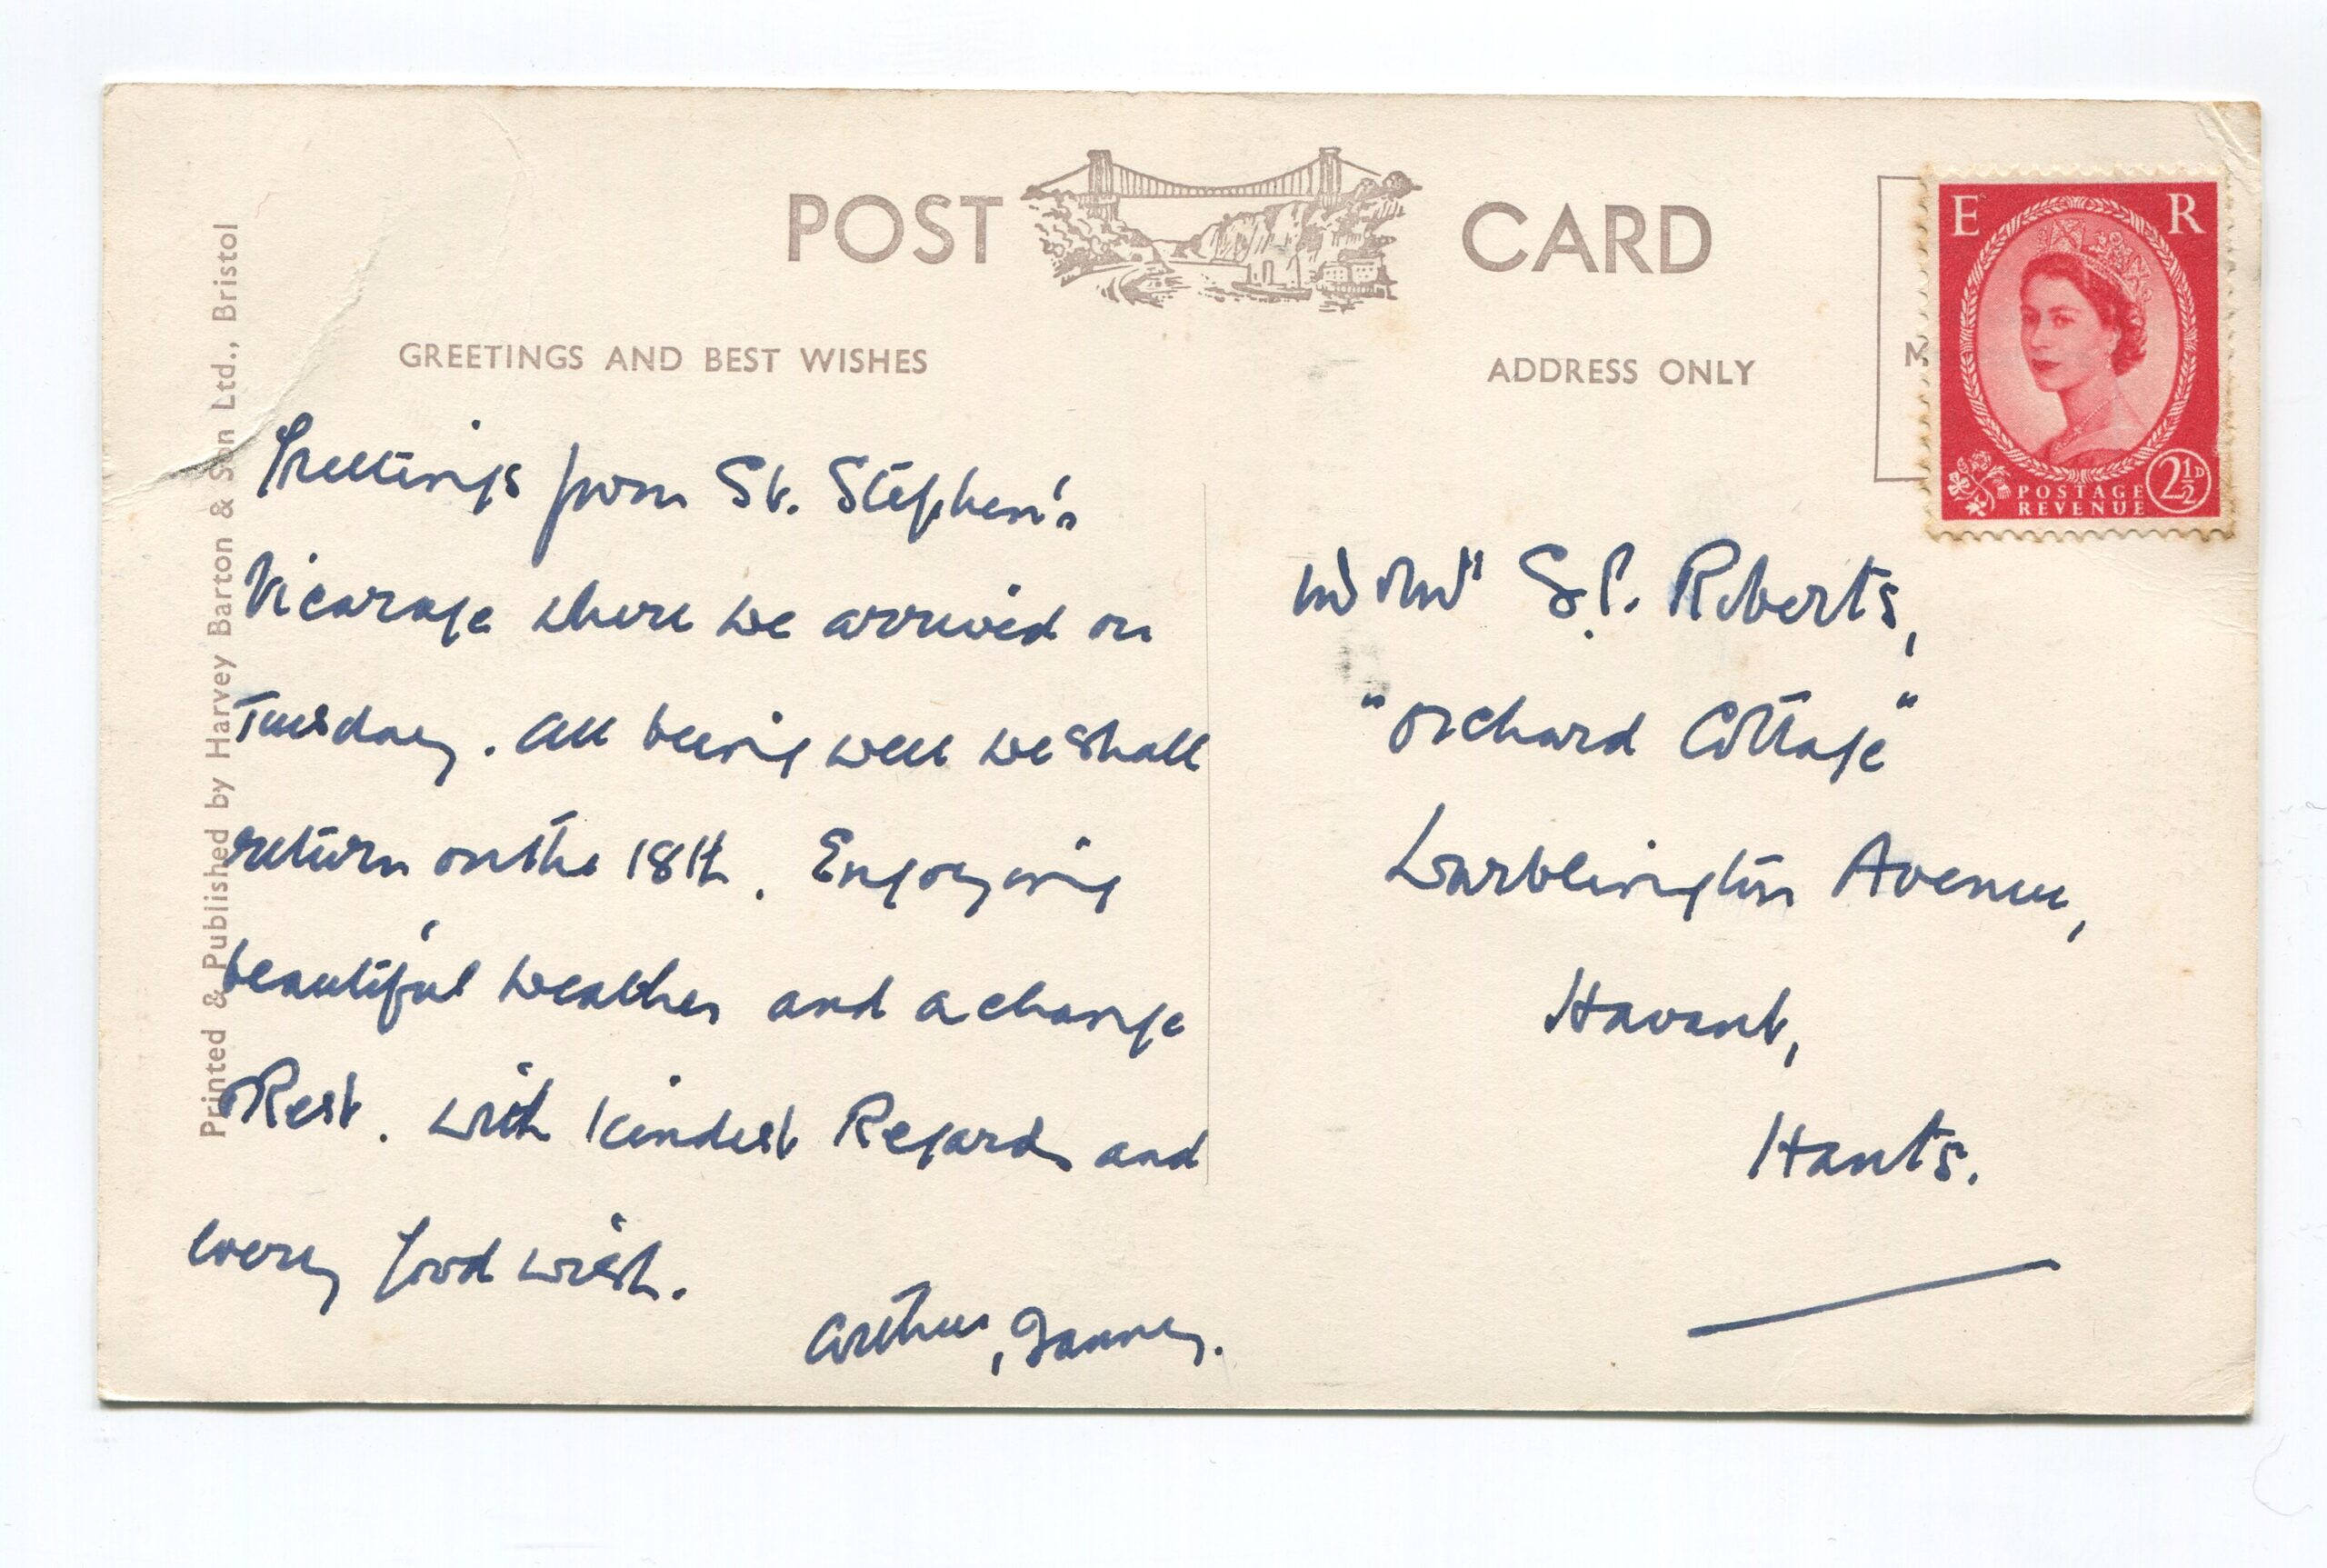 POST CARD
GREETINGS AND BEST WISHES
ADDRESS ONLY
Printed & Published by Harvey Barton & Son Ltd., Bristol
E R
POSTAGE
REVENUE
2½D
Greetings from St. Stephen's
Vicarage where we arrived on
Tuesday. All being well we shall
return on the 18th. Enjoying
beautiful weather and a change
& Rest. With kindest Regards and
every good wish.
Arthur,
Mr & Mrs S.P. Roberts,
"Orchard Cottage"
Warblington Avenue,
Havant,
Hants.